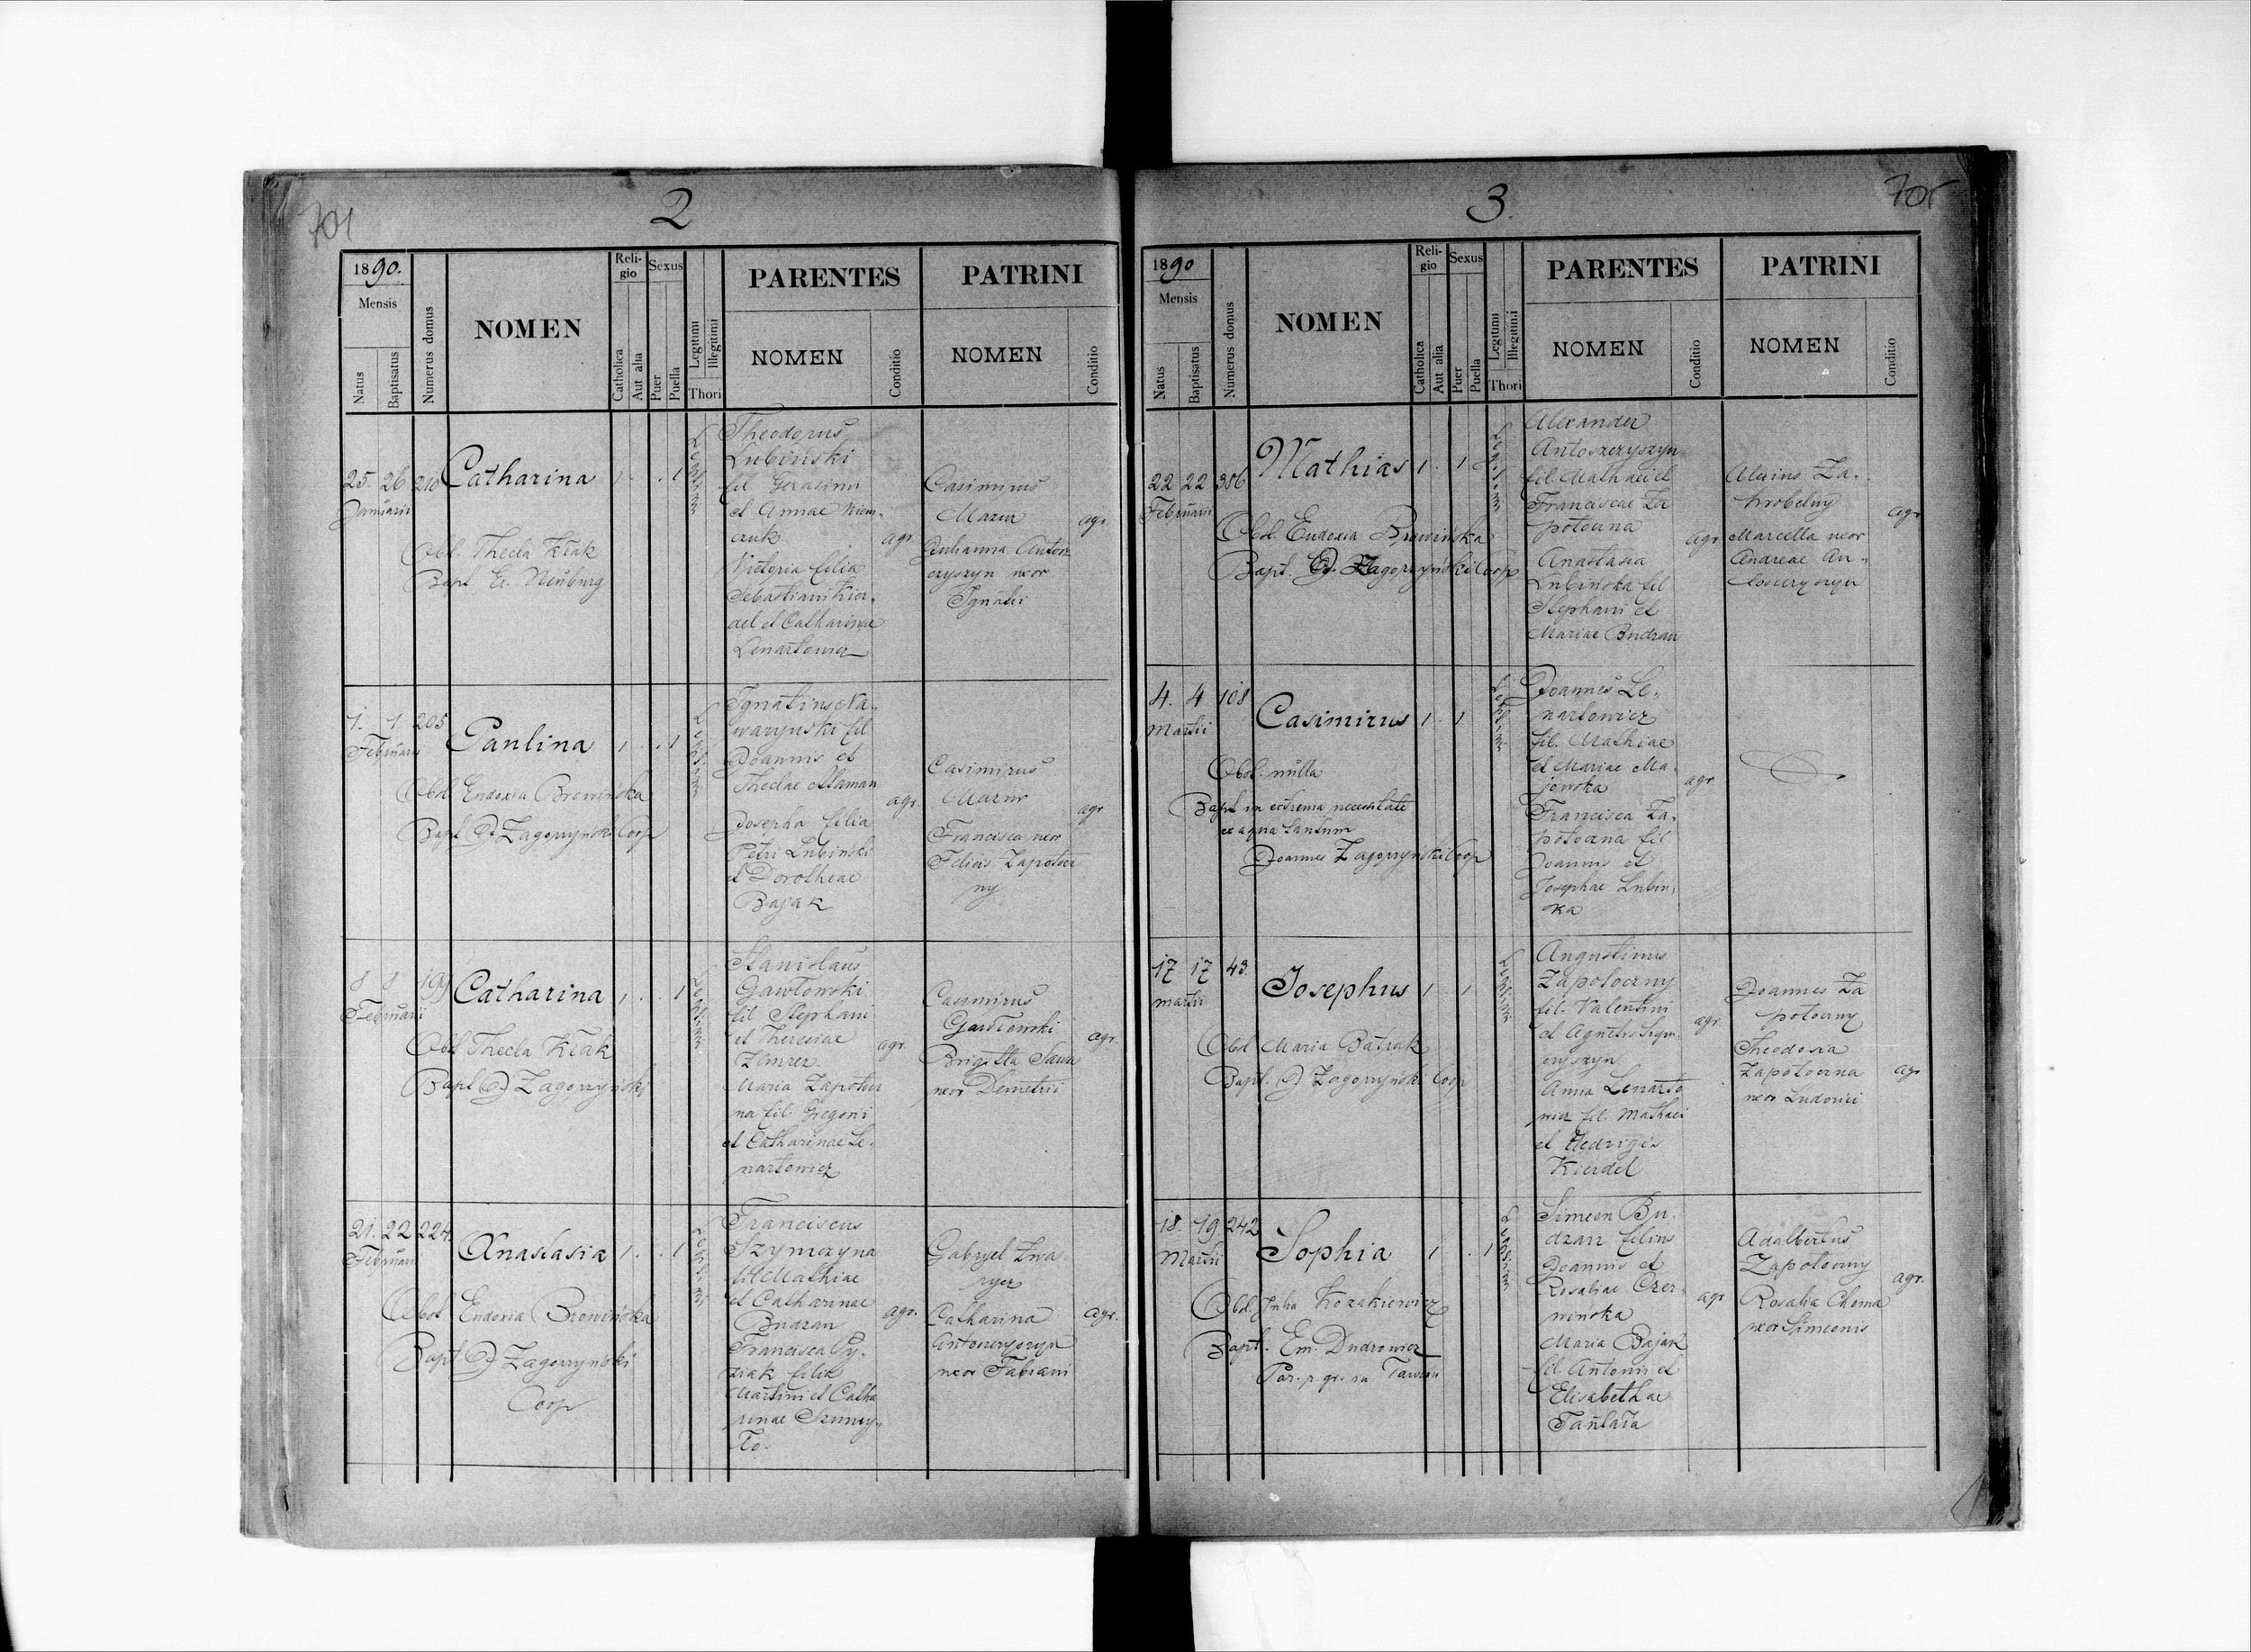 701
2
1890.
Mensis
Natus
Baptisatus
Numerus domus
NOMEN
Reli-
gio
Catholica
Aut alia
Sexus
Puer
Puella
Legitimi
Illegitimi
Thori
PARENTES
NOMEN
Conditio
PATRINI
NOMEN
Conditio
25. 26 210 Catharina 1 . . 1
Januarii
Obst. Thecla Kłak
Bapt Er. Neuburg
Legitimi
Theodorus
Lubiński
fil Gerasimi
et Annae Niem-
czuk
Victoria filia
Sebastiani Kier-
del et Catharinae
Lenartowicz
agr
Casimirus
Mazur
Juhanna Anton
czyszyn uxor
Ignatii
agr.
1. 1 205 Paulina 1 . . 1
Februarii
Obst Eudoxia Browińska
Bapt J Zagorzyński Coop
Legitimi
Ignatius Na-
waryński fil
Joannis et
Theclae Ataman
Josepha filia
Petri Lubiński
et Dorotheae
Bajak
agr.
Casimirus
Mazur
Francisca uxor
Eliae Zapotocz
ny
agr
8 8 199 Catharina 1 . . 1
Februarii
Obst Thecla Kłak
Bapt J Zagorzyński
Legitimi
Stanislaus
Gawłowski
fil Stephani
et Theresiae
Maria Zapotocz
na fil. Gregorii
et Catharinae Le-
nartowicz
agr.
Casimirus
Gawłowski
Brigitta Sawa
uxor Demetrii
agr.
21. 22 224. Anastasia 1 . . 1
Februarii
Obst Eudoxia Browińska
Bapt J Zagorzyński
Coop
Legitimi
Franciscus
Szymczyna
fil Mathiae
et Catharinae
Budzan
Francisca Py-
ziak filia
Martini et Catha
rinae
agr.
Gabryel
Catharina
Antonczyszyn
uxor Fabiani
agr.
705
3.
1890
Mensis
Natus
Baptisatus
Numerus domus
NOMEN
Reli-
gio
Catholica
Aut alia
Sexus
Puer
Puella
Legitimi
Illegitimi
Thori
PARENTES
NOMEN
Conditio
PATRINI
NOMEN
Conditio
22 22 306 Mathias 1 . 1
Februarii
Obst Eudoxia Browińska
Bapt. J. Zagorzyński Coop
Legitimi
Alexander
Antoszczyszyn
fil Mathaei et
Franciscae Za
potoczna
Anastasia
Lubińska fil
Stephani et
Mariae Budzan
agr
Alexius Za-
Marcella uxor
Andreae An-
toszczyszyn
agr
4. 4 108 Casimirus 1 . 1
Martii
Obst. nulla
Bapt in extrema necessitate
ex aqua tantum
Joannes Zagorzyński Coop
Legitimi
Joannes Le-
nartowicz
fil. Mathiae
et Mariae Ma-
jewska
Francisca Za-
potoczna fil
Joannis et
Josephae Lubiń-
ka
agr
17 17 43. Josephus 1 . 1
Martii
Obst Maria Batrak
Bapt. J Zagorzyński Coop
Legitimi
Augustinus
Zapotoczny
fil. Valentini
et Agnetis Szym-
czyszyn
Anna Lenarto
wicz fil. Mathaei
et Hedvigis
Kierdel
agr
Joannes Za
potoczny
Theodosia
Zapotoczna
uxor Ludovici
agr
18. 19 242 Sophia 1 . 1
Martii
Obst. Julia Kozakiewicz
Bapt. Em. Dudrowicz
Par. r. gr. in
Legitimi
Simeon Bu-
dzan filius
Joannis et
Rosaliae Czer-
wińska
Maria Bajak
fil Antonii et
Elisabethae
Tańtała
agr
Adalbertus
Zapotoczny
Rosalia Choma
uxor Simeonis
agr.